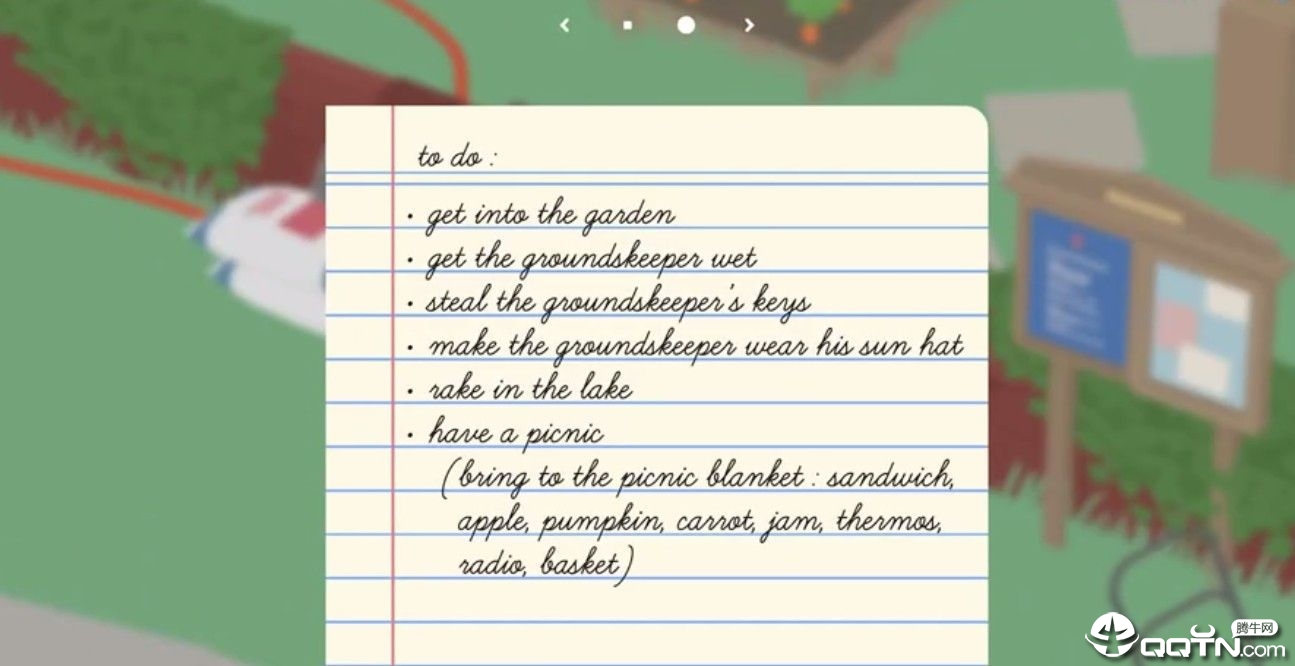 to do :
• get into the garden
• get the groundskeeper wet
• steal the groundskeeper's keys
• make the groundskeeper wear his sun hat
• rake in the lake
• have a picnic
(bring to the picnic blanket : sandwich,
apple, pumpkin, carrot, jam, thermos,
radio, basket)
腾牛网
QQTN.com